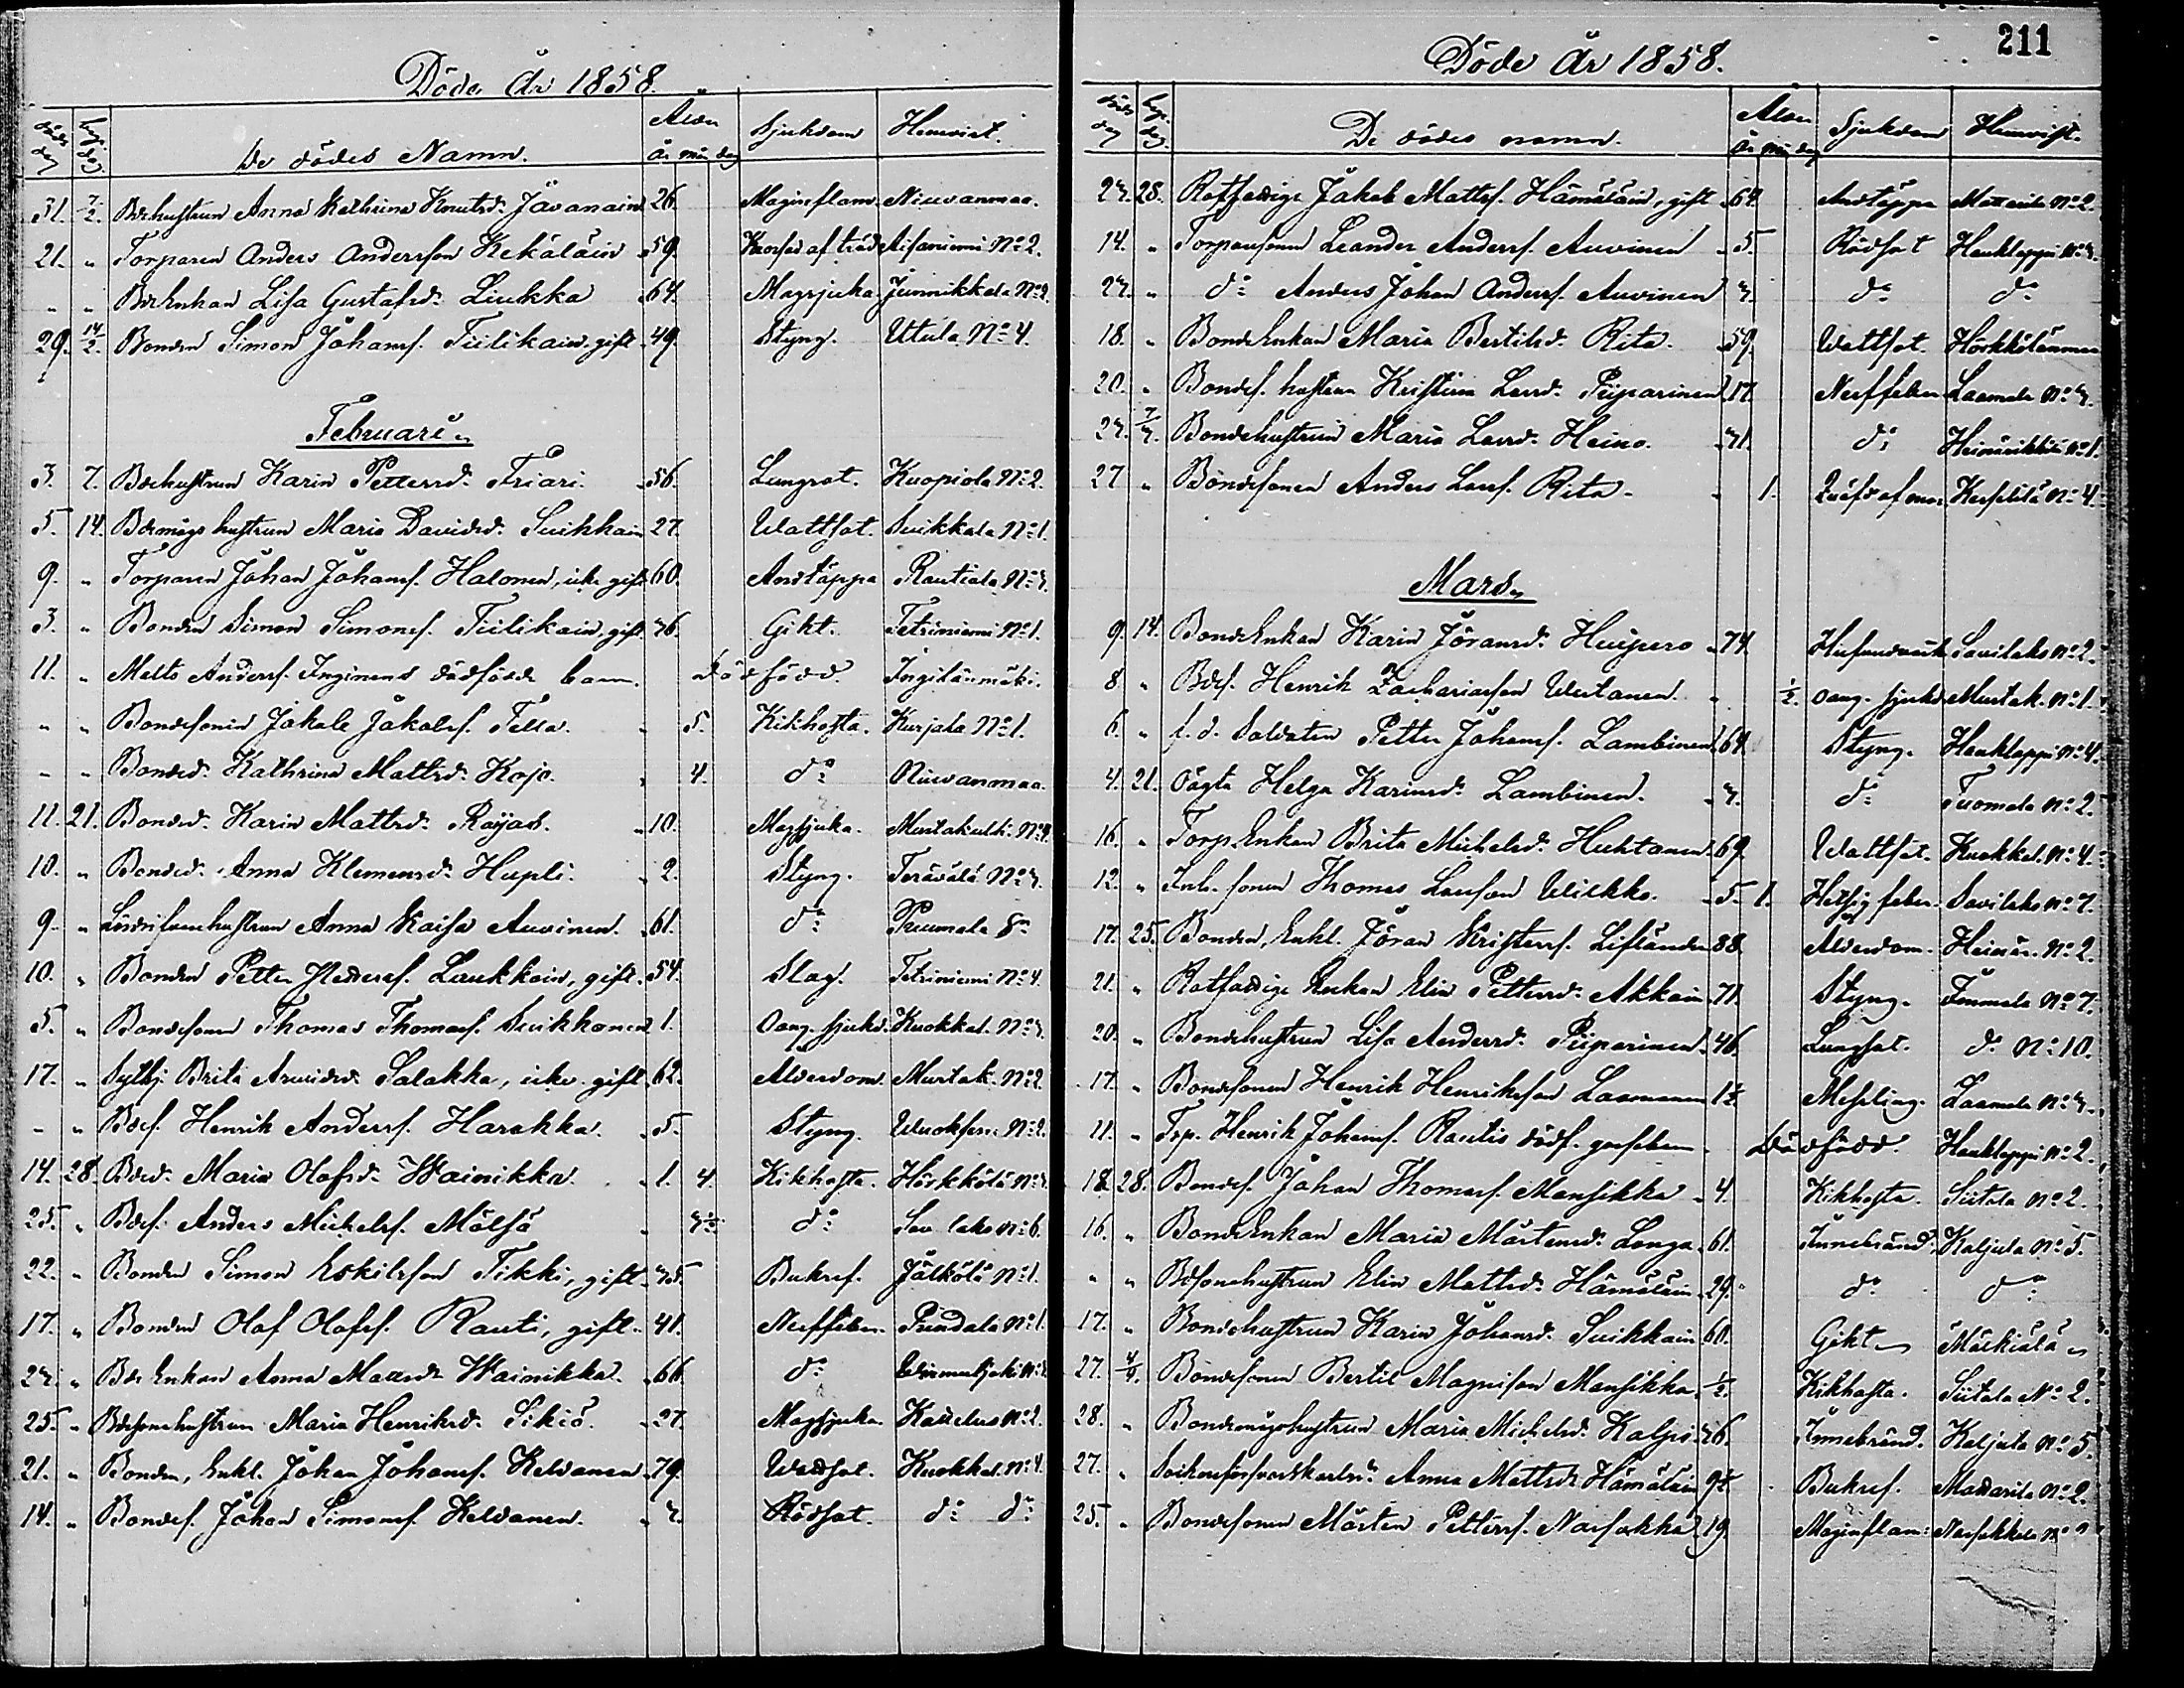 Döde År 1858.
döds dag begr. dag De dödes Namn. Ålder år mån dag Sjukdom Hemvist.
31. 7/2. Bdehustrun Anna Kathrina Knutsd. Javanain 26. Maginflam. Niuvanmaa.
21. " Torparen Anders Andersson Kekäläin 59. af träd No 2.
" " BdeEnkan Lisa Gustafsd. Liukka 64. Magsjuka Junnikkala No 2.
29. 14/2. Bonden Simon Johansf. Tiilikain gift 49. Styng. Uttula No 4.
Februari
3. 7. Bdehustrun Karin Pettersd. Friari. 56. Lungsot. Kuopiola No 2.
5. 14. Bdemågs hustrun Maria Davidsd. Suikkain 27. Wattsot. Suikkala No 1.
9. " Torparen Johan Johansf. Halonen, icke gift 60. Andtäppa Rautiala No 3.
3. " Bonden Simon Simonsf. Tiilikain, gift 36. Gikt. Tetriniemi No 1.
11. " Matts Andersf. Inginens dödfödde barn. Dödfödd Ingilänmäki.
" " Bondesonen Jakob Jakobsf. Tella. " 5. Kikhosta. Kurjala No 1.
" " Bonded. Kathrina Mattsd. Kojo. " 4. do Niuvanmaa.
11. 21. Bonded. Karin Mattsd. Rajas. 10. Magsjuka. No 4.
10. " Bonded. Anna Klemensd. Hupli. 2. Styng. Teräválä No 3.
9. " hustrun Anna Kaisa Auvinen. 61. do Puumala Sn
10. " Bonden Petter Laukkain, gift. 54. Slag. Tetriniemi No 4.
5. " Bondesonen Thomas Thomasf. Suikkanen 1. Oang. sjukd. Kuokkal. No 3.
17. " Sythj. Brita Arvidsd. Salakka, icke gift 62. Ålderdom. Mustak. No 2.
" " Bdes. Henrik Andersf. Harakka. 5. Styng. Wuoksen. No 2.
14. 28. Bded. Maria Olofsd. Wainikka. 1. 4. Kikhosta. Hörkkölä No 3.
25. " Bdes. Anders Michelsf. Mölsä " 3 1/2. do Savilaks No 6.
22. " Bonden Simon Eskilsson Tikki, gift 35. Bukref. Jälkölä No 1.
17. " Bonden Olof Olofsf. Rauti, gift. 41. Nerffeber. Pundala No 1.
23. " Bde Enkan Anna Wainikka. 66. do
25. " Bdesonehustrun Maria Henriksd. Sikiö. 27. Magsjuka. Kaukelus No 2.
21. " Bonden, Enkl. Johan Johansf. Keldanen 79. Wattsot. Kuokkal. No 4.
14. " Bondes. Johan Simonsf. Keldanen. 3. Rödsot. do do
211
Döde År 1858.
döds dag begr. dag De dödes namn. Ålder år mån dag Sjukdom Hemvist.
23. 28. Rotfattige Jakob Mattsf. Hämäläin, gift 64. Andtäppa Mattarila No 2.
14. " Torparesonen Leander Andersf. Auvinen 5. Rödsot Haukloppi No 3.
23. " do Anders Johan Andersf. Auvinen 3. do do
18. " BondeEnkan Maria Bertilsd. Rita. 59. Wattsot. Hörkkölänmaa
20. " Bondes. hustrun Kristina Larsd. Piiparinen 17. Nerffeber Laamala No 3.
23. 7/3. Bondehustrun Maria Larsd. Heino. 31. do No 1.
27 " Bondesonen Anders Larsf. Rita. " 1. Qväfd af mor. No 4.
Mars
9. 14. BondeEnkan Karin Göransd. Huipero 74. Hufvudvärk Savilaks No 2.
8. " Bdes. Henrik Zachariasson Westanen. " 1/2. oang. sjukd. Mustak. No 1.
6. " f. d. Soldaten Petter Johansf. Lambinen 64. Styng. Haukloppi No 4.
4. 21. Oägta Helga Karinsd. Lambinen. 3. do Tuomala No 2.
16. " Torp. Enkan Brita Michelsd. Huhtanen 69. Wattsot. Kuokkal. No 4.
12. " Inh. sonen Thomas Larsson Wilkko. 5. 1. Hetsig feber. Savilaks No 7.
17. 25. Bonden, Enkl. Göran Kristersf. Lifländer 88. Ålderdom. Heinär. No 2.
21. " Rotfattige Enkan Elin Pettersd. Akkain 71. Styng. Immala No 7.
20. " Bondehustrun Lisa Andersd. Piiparinen 46. Lungsot. do No 10.
17. " Bondesonen Henrik Henriksson Laamanen 1 1/2 Messling. Laamala No 3.
11. " Trp. Henrik Johansf. Rautis dödf. gossebarn Dödfödd. Haukloppi No 2.
18. 28. Bondes. Johan Thomasf. Mansikka 4. Kikhosta. Siitala No 2.
16. " BondeEnkan Maria Mårtensd. Longa 61. Innebränd. Kaljula No 5.
" " Bdsonehustrun Elin Mattsd. Hämäläin 29. do do
17. " Bondehustrun Karin Johansd. Suikkain 60. Gikt Märkiälä
27. 4/4. Bondesonen Bertil Magnison Mansikka 1/2. Kikhosta. Siitala No 2.
28. " Bondemågshustrun Maria Michelsd. Kalpio 36. Innebränd. Kaljula No 5.
27. " Anna Mattsd. Hämäläin 9 1/2 Bukref. Mattarila No 2.
25. " Bondesonen Mårten Pettersf. Narsakka 19. Maginflam. Narsakkala No